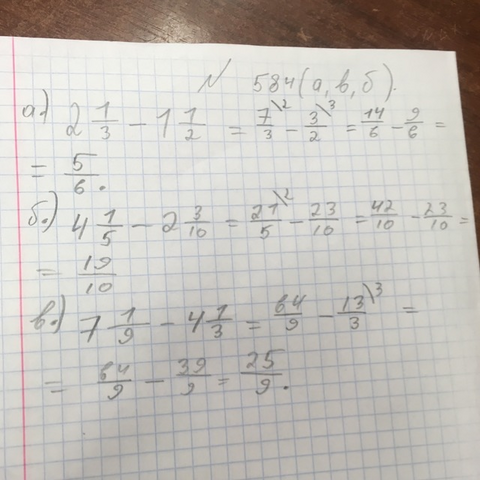 № 584(а, в, б).
а) 2 1/3 − 1 1/2 = 7/3\2 − 3/2\3 = 14/6 − 9/6 =
= 5/6.
б.) 4 1/5 − 2 3/10 = 21/5\2 − 23/10 = 42/10 − 23/10 =
= 19/10
в.) 7 1/9 − 4 1/3 = 64/9 − 13/3\3 =
= 64/9 − 39/9 = 25/9.